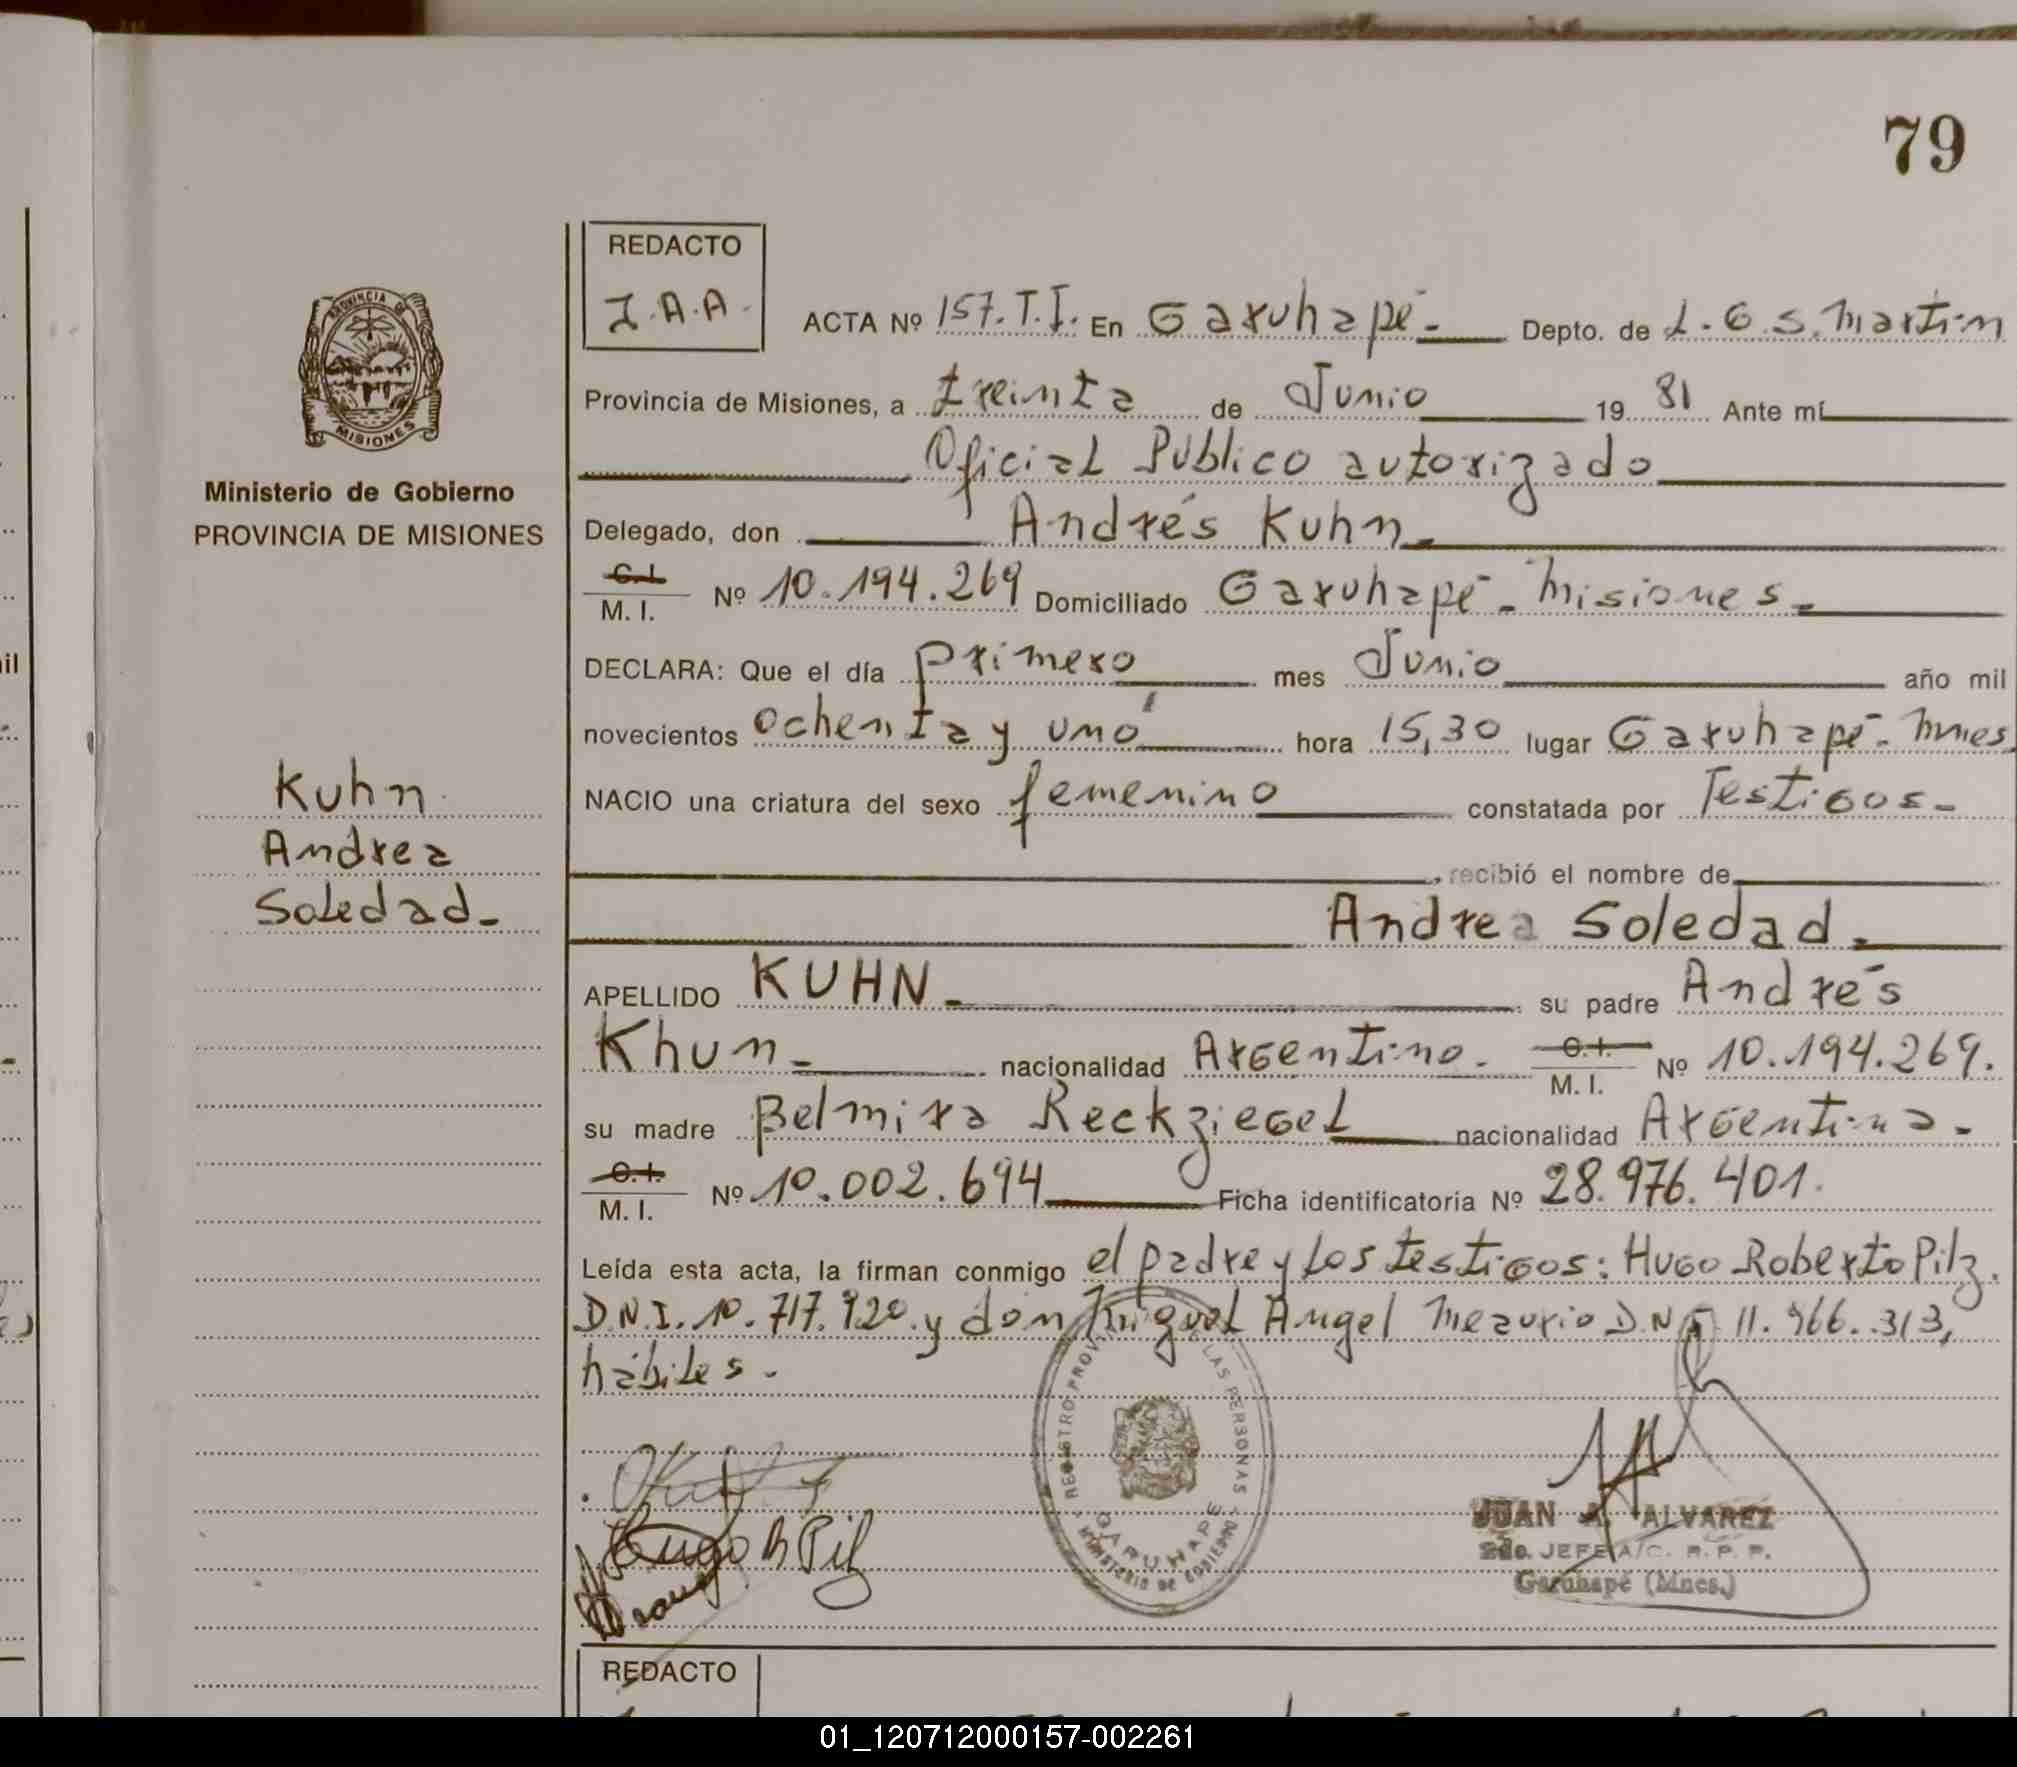 79
REDACTO
J.A.A.
ACTA Nº 157.T.I. En Garuhapé- Depto. de L.G.S.Martin
Provincia de Misiones, a treinta de Junio 19 81 Ante mí
Oficial Público autorizado
Delegado, don Andrés Kuhn
C.I. M. I. Nº 10.194.269 Domiciliado Garuhapé - Misiones-
DECLARA: Que el día primero mes Junio año mil
novecientos ochenta y uno hora 15,30 lugar Garuhapé - Mnes
NACIO una criatura del sexo femenino constatada por Testigos-
, recibió el nombre de
Andrea Soledad.
APELLIDO KUHN- su padre Andrés
Khun- nacionalidad Argentino. C.I. M. I. Nº 10.194.269.
su madre Belmira Reckziegel nacionalidad Argentina-
C.I. M. I. Nº 10.002.694 Ficha identificatoria Nº 28.976.401.
Leída esta acta, la firman conmigo el padre y los testigos: Hugo Roberto Pilz.
D.N.I. 10.717.920. y don Miguel Angel D.N.I 11.966.313,
hábiles-
PROVINCIA DE
MISIONES
Ministerio de Gobierno
PROVINCIA DE MISIONES
Kuhn
Andrea
Soledad-
Hugo R Pilz
REGISTRO PROVI LAS PERSONAS
GARUHAPE
MINISTERIO DE GOBIERNO
JUAN A. ALVAREZ
2do. JEFE A/C. R. P. P.
Garuhapé (Mnes.)
REDACTO
01_120712000157-002261